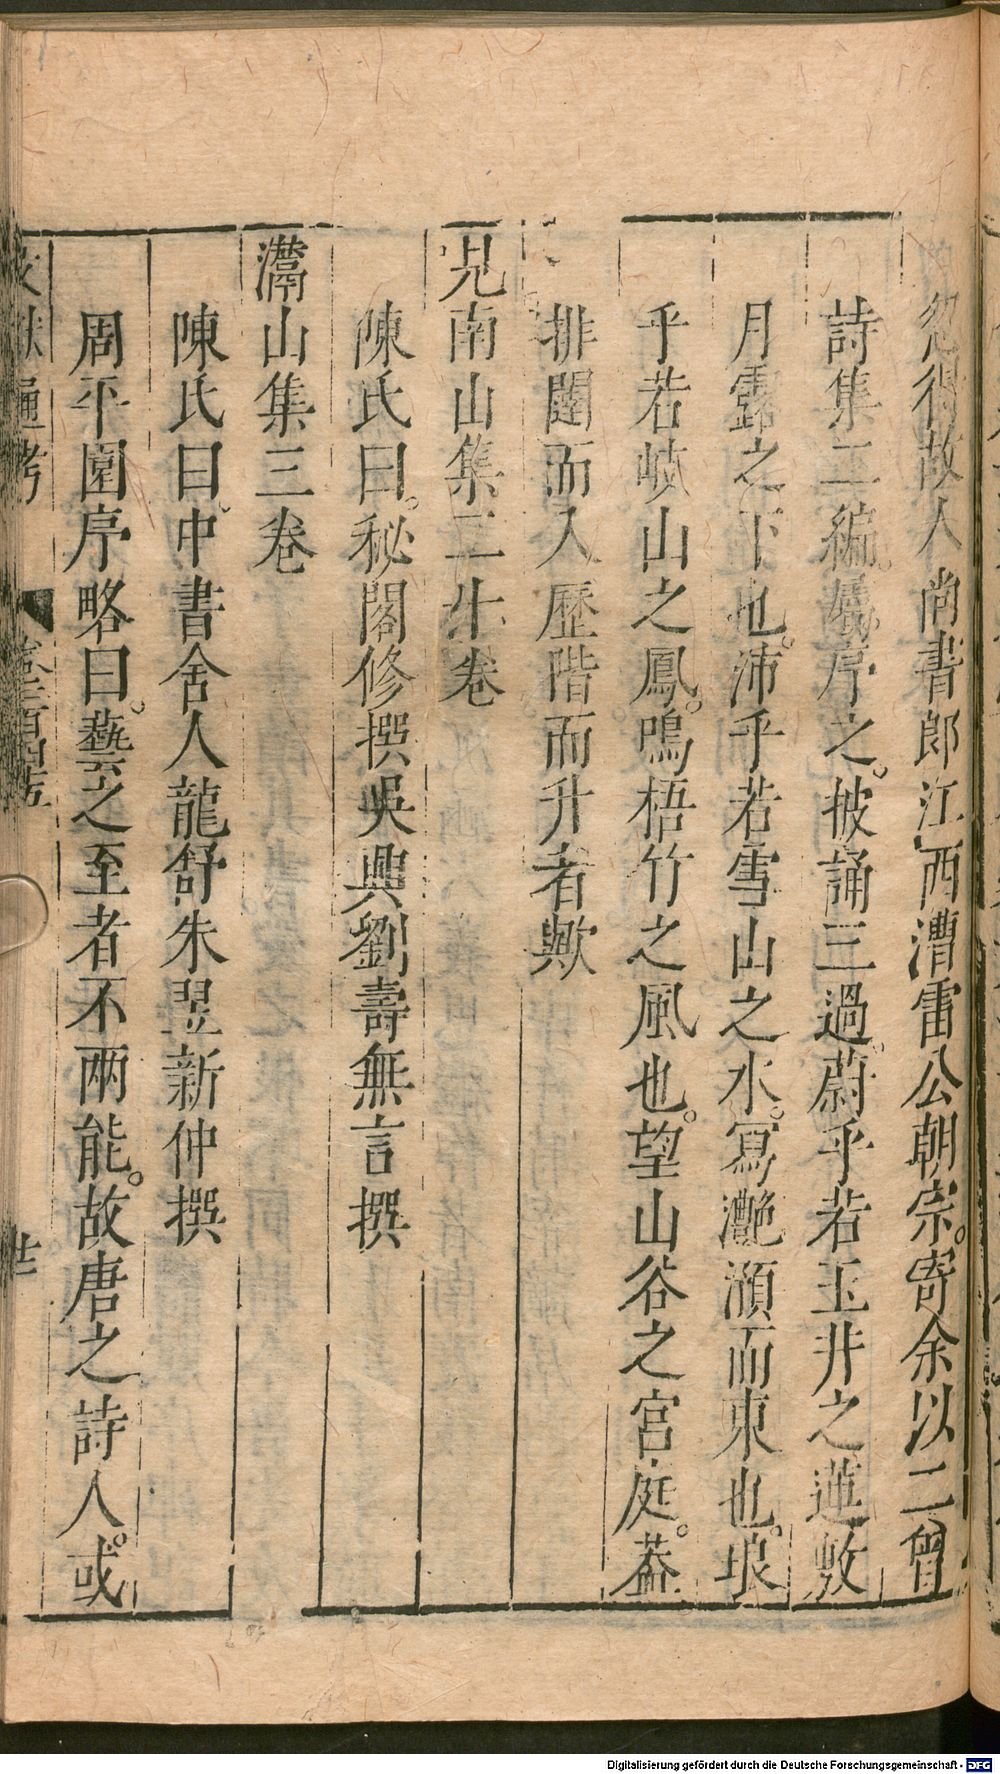 忽得故人尚書郎江西漕雷公朝宗。寄余以二曾
詩集二編。屬序之。披誦三過。蔚乎若玉井之蓮敷
月露之下也。沛乎若雪山之水。冩灔澦而東也。琅
乎若岐山之鳳。鳴梧竹之風也。望山谷之宮庭。葢
排闥而入歷階而升者歟
見南山集二十卷
陳氏曰。秘閣修撰吳興劉壽無言撰
灊山集三卷
陳氏曰。中書舍人龍舒朱翌新仲撰
周平園序略曰。藝之至者不兩能。故唐之詩人。或
文獻通考
廿
Digitalisierung gefördert durch die Deutsche Forschungsgemeinschaft - DFG